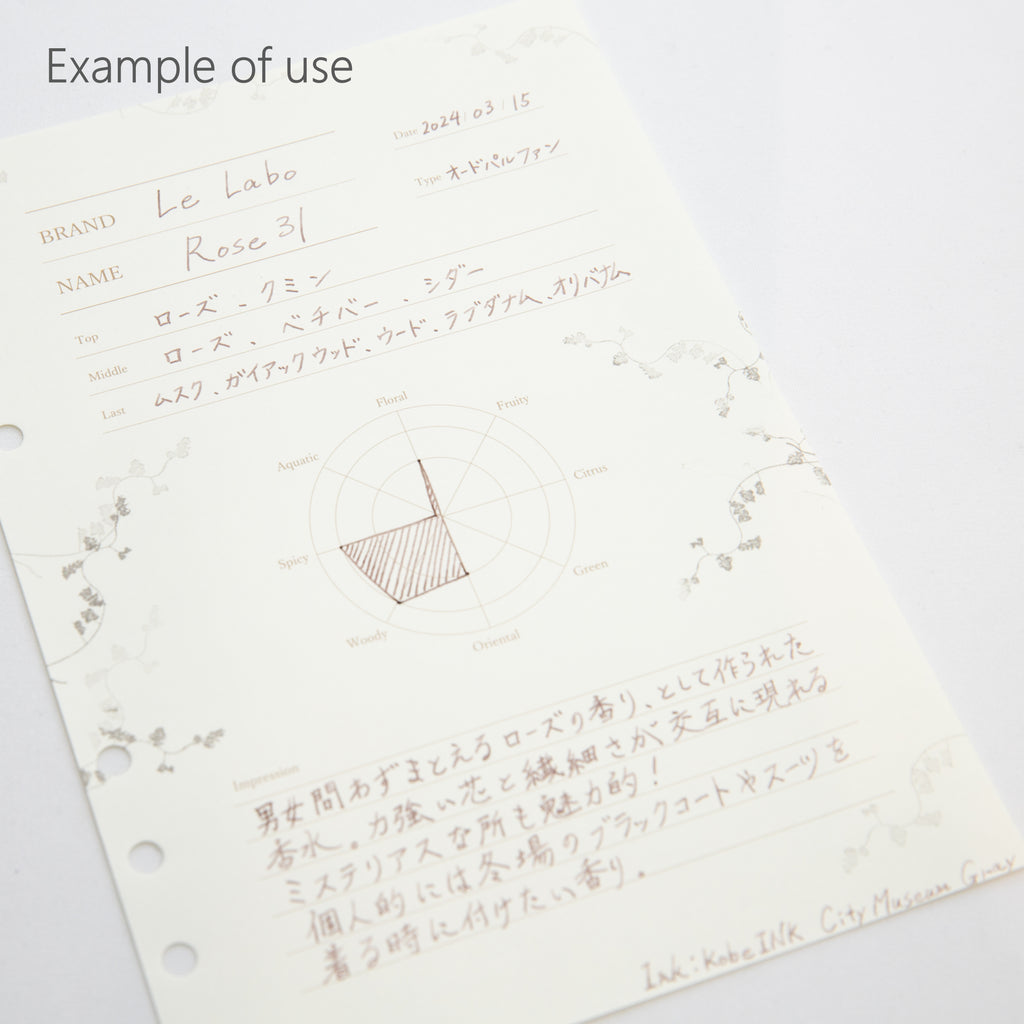 Example of use
Date 2024/03/15
Type オードパルファン
BRAND Le Labo
NAME Rose 31
Top ローズ、クミン
Middle ローズ、ベチバー、シダー
Last ムスク、ガイアックウッド、ウード、ラブダナム、オリバナム
Floral
Fruity
Aquatic
Citrus
Spicy
Green
Woody
Oriental
Impression
男女問わずまとえるローズの香り、として作られた
香水。力強い芯と繊細さが交互に現れる
ミステリアスな所も魅力的！
個人的には冬場のブラックコートやスーツを
着る時に付けたい香り。
Ink:Kobe INK City Museum Gray